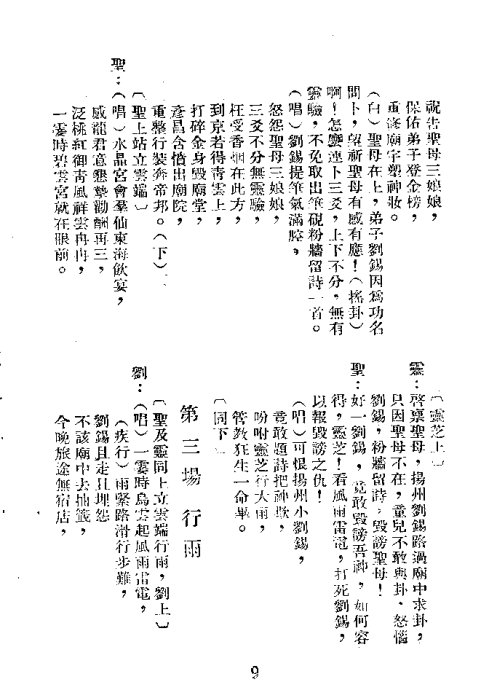 祝告聖母三娘娘，
保佑弟子登金榜，
重修廟宇塑神妝。
（白）聖母在上，弟子劉錫因爲功名
問卜，望祈聖母有感有應！（搖卦）
啊！怎麼連卜三爻，上下不分，無有
靈驗，不免取出筆硯粉牆留詩一首。
（唱）劉錫提筆氣滿腔，
怒怨聖母三娘娘，
三爻不分無靈驗，
枉受香烟在此方，
到京若得靑雲上，
打碎金身毀廟堂，
彥昌含憤出廟院，
重整行裝奔帝邦。（下）
〔聖上站立雲端〕
聖：（唱）水晶宮會羣仙東海飲宴，
感龍君意懇摯勸酬再三，
泛桃紅御靑風祥雲冉冉，
一霎時碧雲宮就在眼前。
〔靈芝上〕
靈：啓稟聖母，揚州劉錫路過廟中求卦，
只因聖母不在，童兒不敢與卦，怒惱
劉錫，粉牆留詩，毀謗聖母！
聖：好一劉錫，竟敢毀謗吾神，如何容
得，靈芝！看風雨雷電，打死劉錫，
以報毀謗之仇！
（唱）可恨揚州小劉錫，
竟敢題詩把神欺，
吩咐靈芝行大雨，
管敎狂生一命畢。
〔同下〕
第三場　行雨
〔聖及靈同上立雲端行雨，劉上〕
劉：（唱）一霎時烏雲起風雨雷電，
（疾行）雨緊路滑行步難，
劉錫且走且埋怨
不該廟中去抽籤，
今晚旅途無宿店，
9